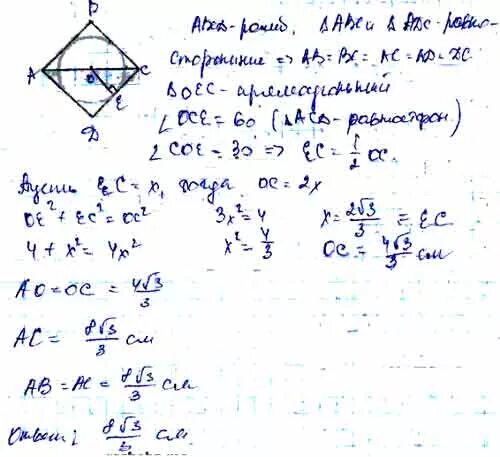 B
A
O
C
E
D
ABCD-ромб. ΔABC и ΔADC-равно-
сторонние => AB=BC=AC=AD=DC.
ΔOEC-прямоугольный
∠OCE=60 (ΔACD-равностор.)
∠COE=30 => EC=1/2 OC.
Пусть EC=x, тогда OC=2x
OE²+EC²=OC² 3x²=4 x=2√3/3 =EC
4+x²=4x² x²=4/3 OC=4√3/3 см
AO=OC=4√3/3
AC=8√3/3 см
AB=AC=8√3/3 см
Ответ: 8√3/3 см.